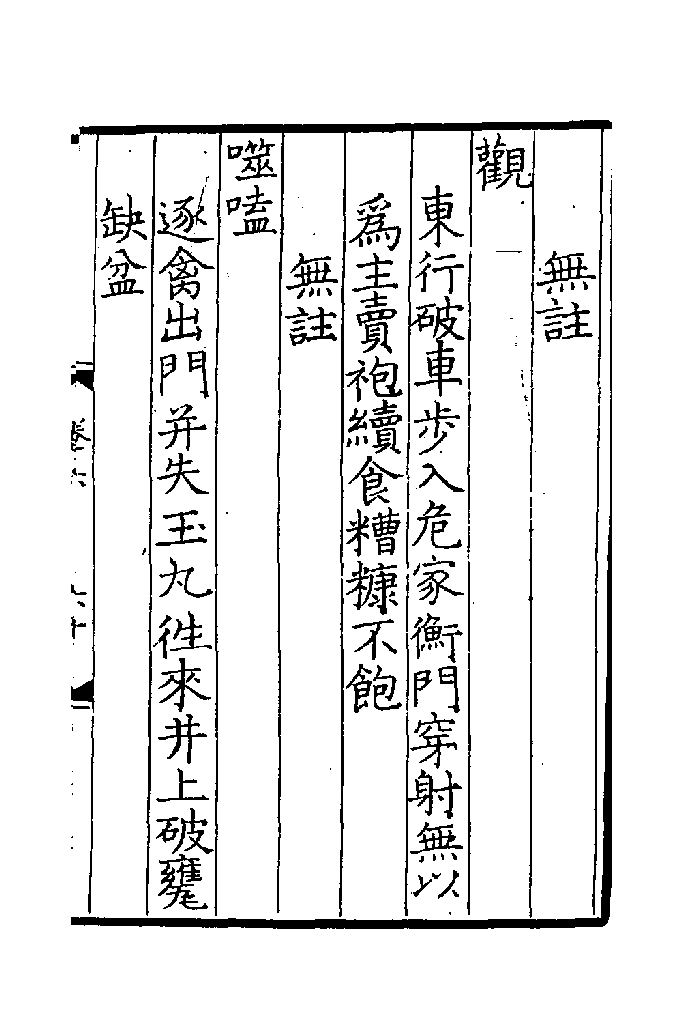 無註
觀
東行破車步入危家衡門穿射無以
爲主賣袍續食糟糠不飽
無註
噬嗑
逐禽出門并失玉丸徃來井上破甕
缺盆